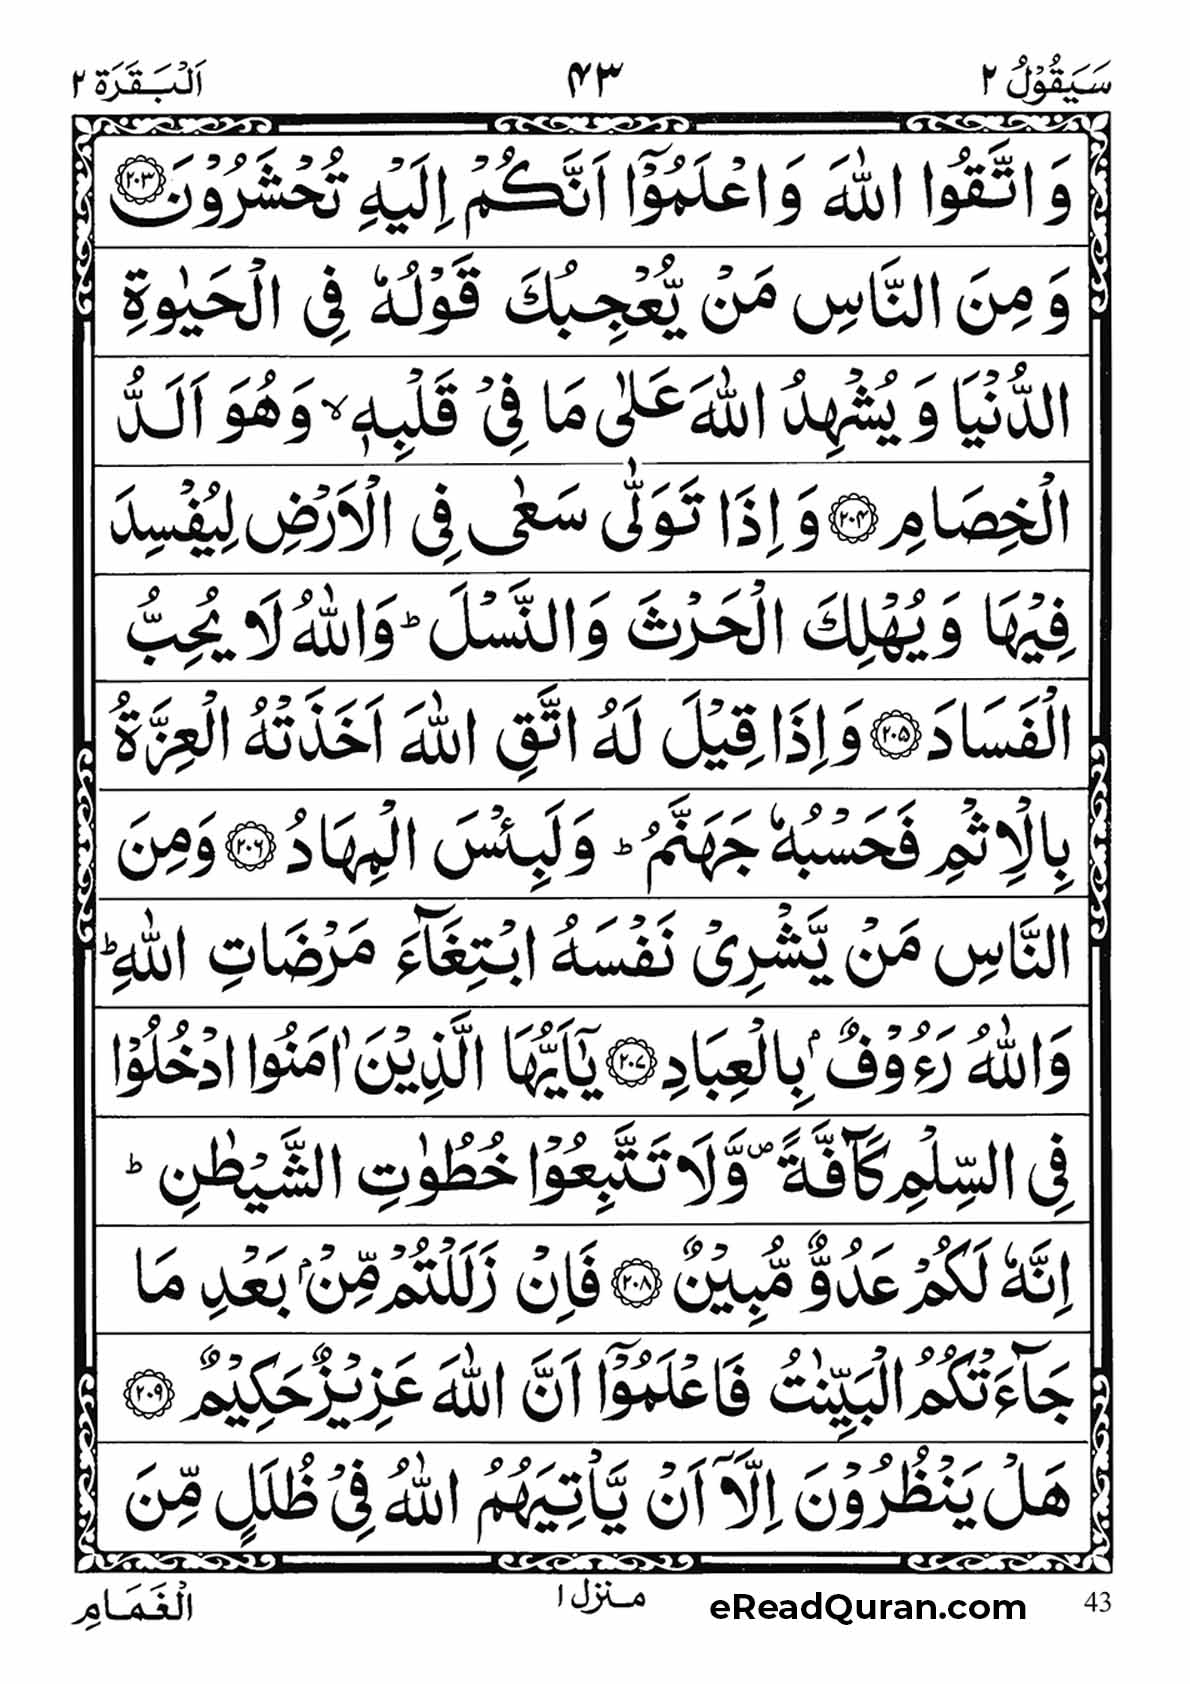 سَيَقُوْلُ ٢ ۴۳ اَلْبَقَرَة ٢
وَ اتَّقُوا اللّٰهَ وَ اعْلَمُوْۤا اَنَّكُمْ اِلَيْهِ تُحْشَرُوْنَ ﴿۲۰۳﴾
وَ مِنَ النَّاسِ مَنْ يُّعْجِبُكَ قَوْلُهٗ فِي الْحَيٰوةِ
الدُّنْيَا وَ يُشْهِدُ اللّٰهَ عَلٰى مَا فِيْ قَلْبِهٖ ۙ وَ هُوَ اَلَدُّ
الْخِصَامِ ﴿۲۰۴﴾ وَ اِذَا تَوَلّٰى سَعٰى فِي الْاَرْضِ لِيُفْسِدَ
فِيْهَا وَ يُهْلِكَ الْحَرْثَ وَ النَّسْلَ ؕ وَ اللّٰهُ لَا يُحِبُّ
الْفَسَادَ ﴿۲۰۵﴾ وَ اِذَا قِيْلَ لَهُ اتَّقِ اللّٰهَ اَخَذَتْهُ الْعِزَّةُ
بِالْاِثْمِ فَحَسْبُهٗ جَهَنَّمُ ؕ وَ لَبِئْسَ الْمِهَادُ ﴿۲۰۶﴾ وَ مِنَ
النَّاسِ مَنْ يَّشْرِيْ نَفْسَهُ ابْتِغَآءَ مَرْضَاتِ اللّٰهِ ؕ
وَ اللّٰهُ رَءُوْفٌۢ بِالْعِبَادِ ﴿۲۰۷﴾ يٰۤاَيُّهَا الَّذِيْنَ اٰمَنُوا ادْخُلُوْا
فِي السِّلْمِ كَآفَّةً ۪ وَّ لَا تَتَّبِعُوْا خُطُوٰتِ الشَّيْطٰنِ ؕ
اِنَّهٗ لَكُمْ عَدُوٌّ مُّبِيْنٌ ﴿۲۰۸﴾ فَاِنْ زَلَلْتُمْ مِّنْۢ بَعْدِ مَا
جَآءَتْكُمُ الْبَيِّنٰتُ فَاعْلَمُوْۤا اَنَّ اللّٰهَ عَزِيْزٌ حَكِيْمٌ ﴿۲۰۹﴾
هَلْ يَنْظُرُوْنَ اِلَّاۤ اَنْ يَّاْتِيَهُمُ اللّٰهُ فِيْ ظُلَلٍ مِّنَ
الْغَمَامِ منزل ١ eReadQuran.com 43